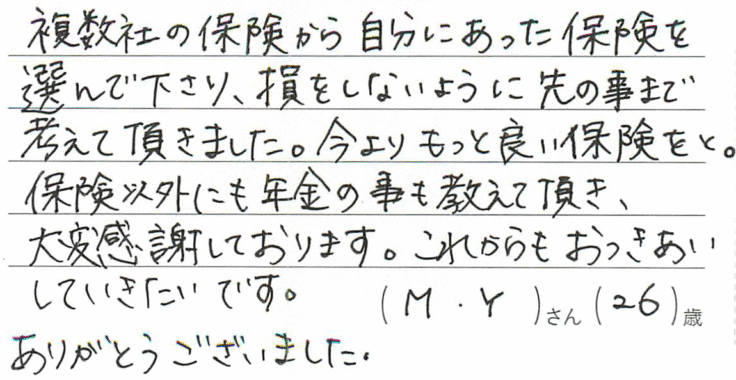 複数社の保険から自分にあった保険を
選んで下さり、損をしないように先の事まで
考えて頂きました。今よりもっと良い保険をと。
保険以外にも年金の事も教えて頂き、
大変感謝しております。これからもおつきあい
していきたいです。 (M.Y)さん(26)歳
ありがとうございました。